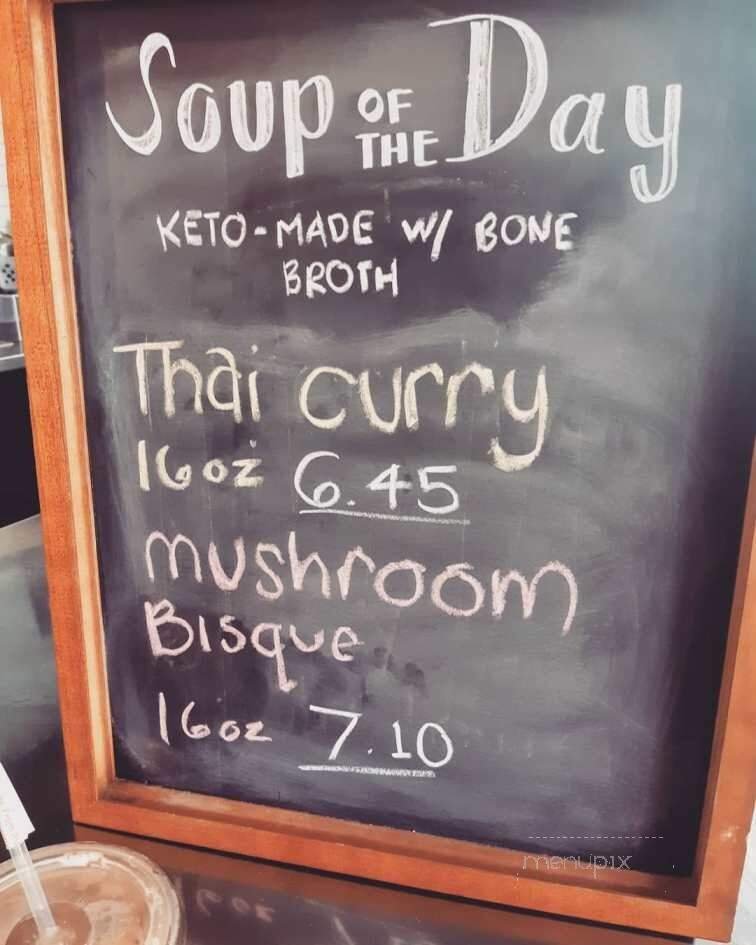 Soup OF THE Day
KETO-MADE W/ BONE
BROTH
Thai curry
16oz 6.45
mushroom
Bisque
16oz 7.10
menupix